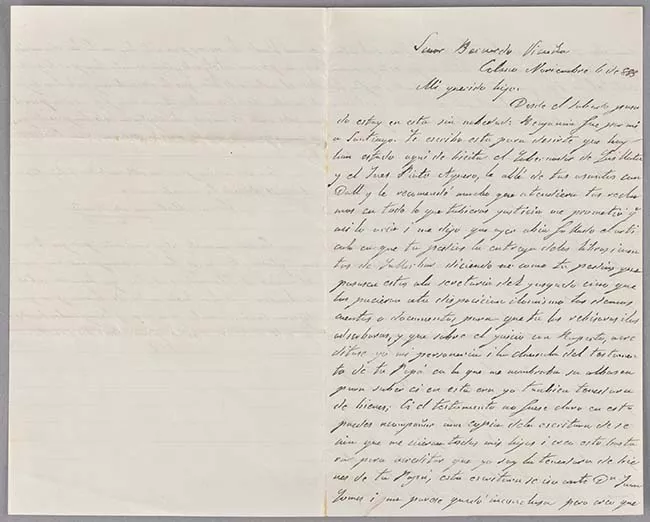 Señor Bernardo Vicuña
Noviembre 6 de 888
Mi querido hijo:
Desde el sabado pasa
do estoy en esta sin novedad: Benjamin fue por mi
a Santiago. Te escribo esta para decirte que hoy
han estado aquí de visita el Gobernador de
y el Juez Pinto Aguero, le ablé de tus asuntos con
Doll y le recomendé mucho que atendiera tus recla
mos en todo lo que tubieras justicia me prometió q
asi lo aria i me dijo que ayer abia fallado el arti
culo en que tu pedias la entrega de los
tos de diciendo no como tu pedias que
pasasen estos a la secretaria del juzgado sino que
los pusieran a tu disposicion lo mismo los demas
cuentas o documentos para que tu los revisaras i los
, y que sobre el juicio con Ruperto, acre
ditase yo mi personeria i la clausula del testamen
to de tu Papá en la que me nombraba su albacea
para saber si en esta era yo tambien tenedora
de bienes; Si el testamento no fuese claro en esto
puedes acompañar una copia de la escritura de se
cion que me icieron todos mis hijos i creo esto basta
rá para acreditar que yo soy la tenedora de bie
nes de tu Papá, esta escritura se iso ante Dn Juan
i me parece quedó inconclusa pero creo que